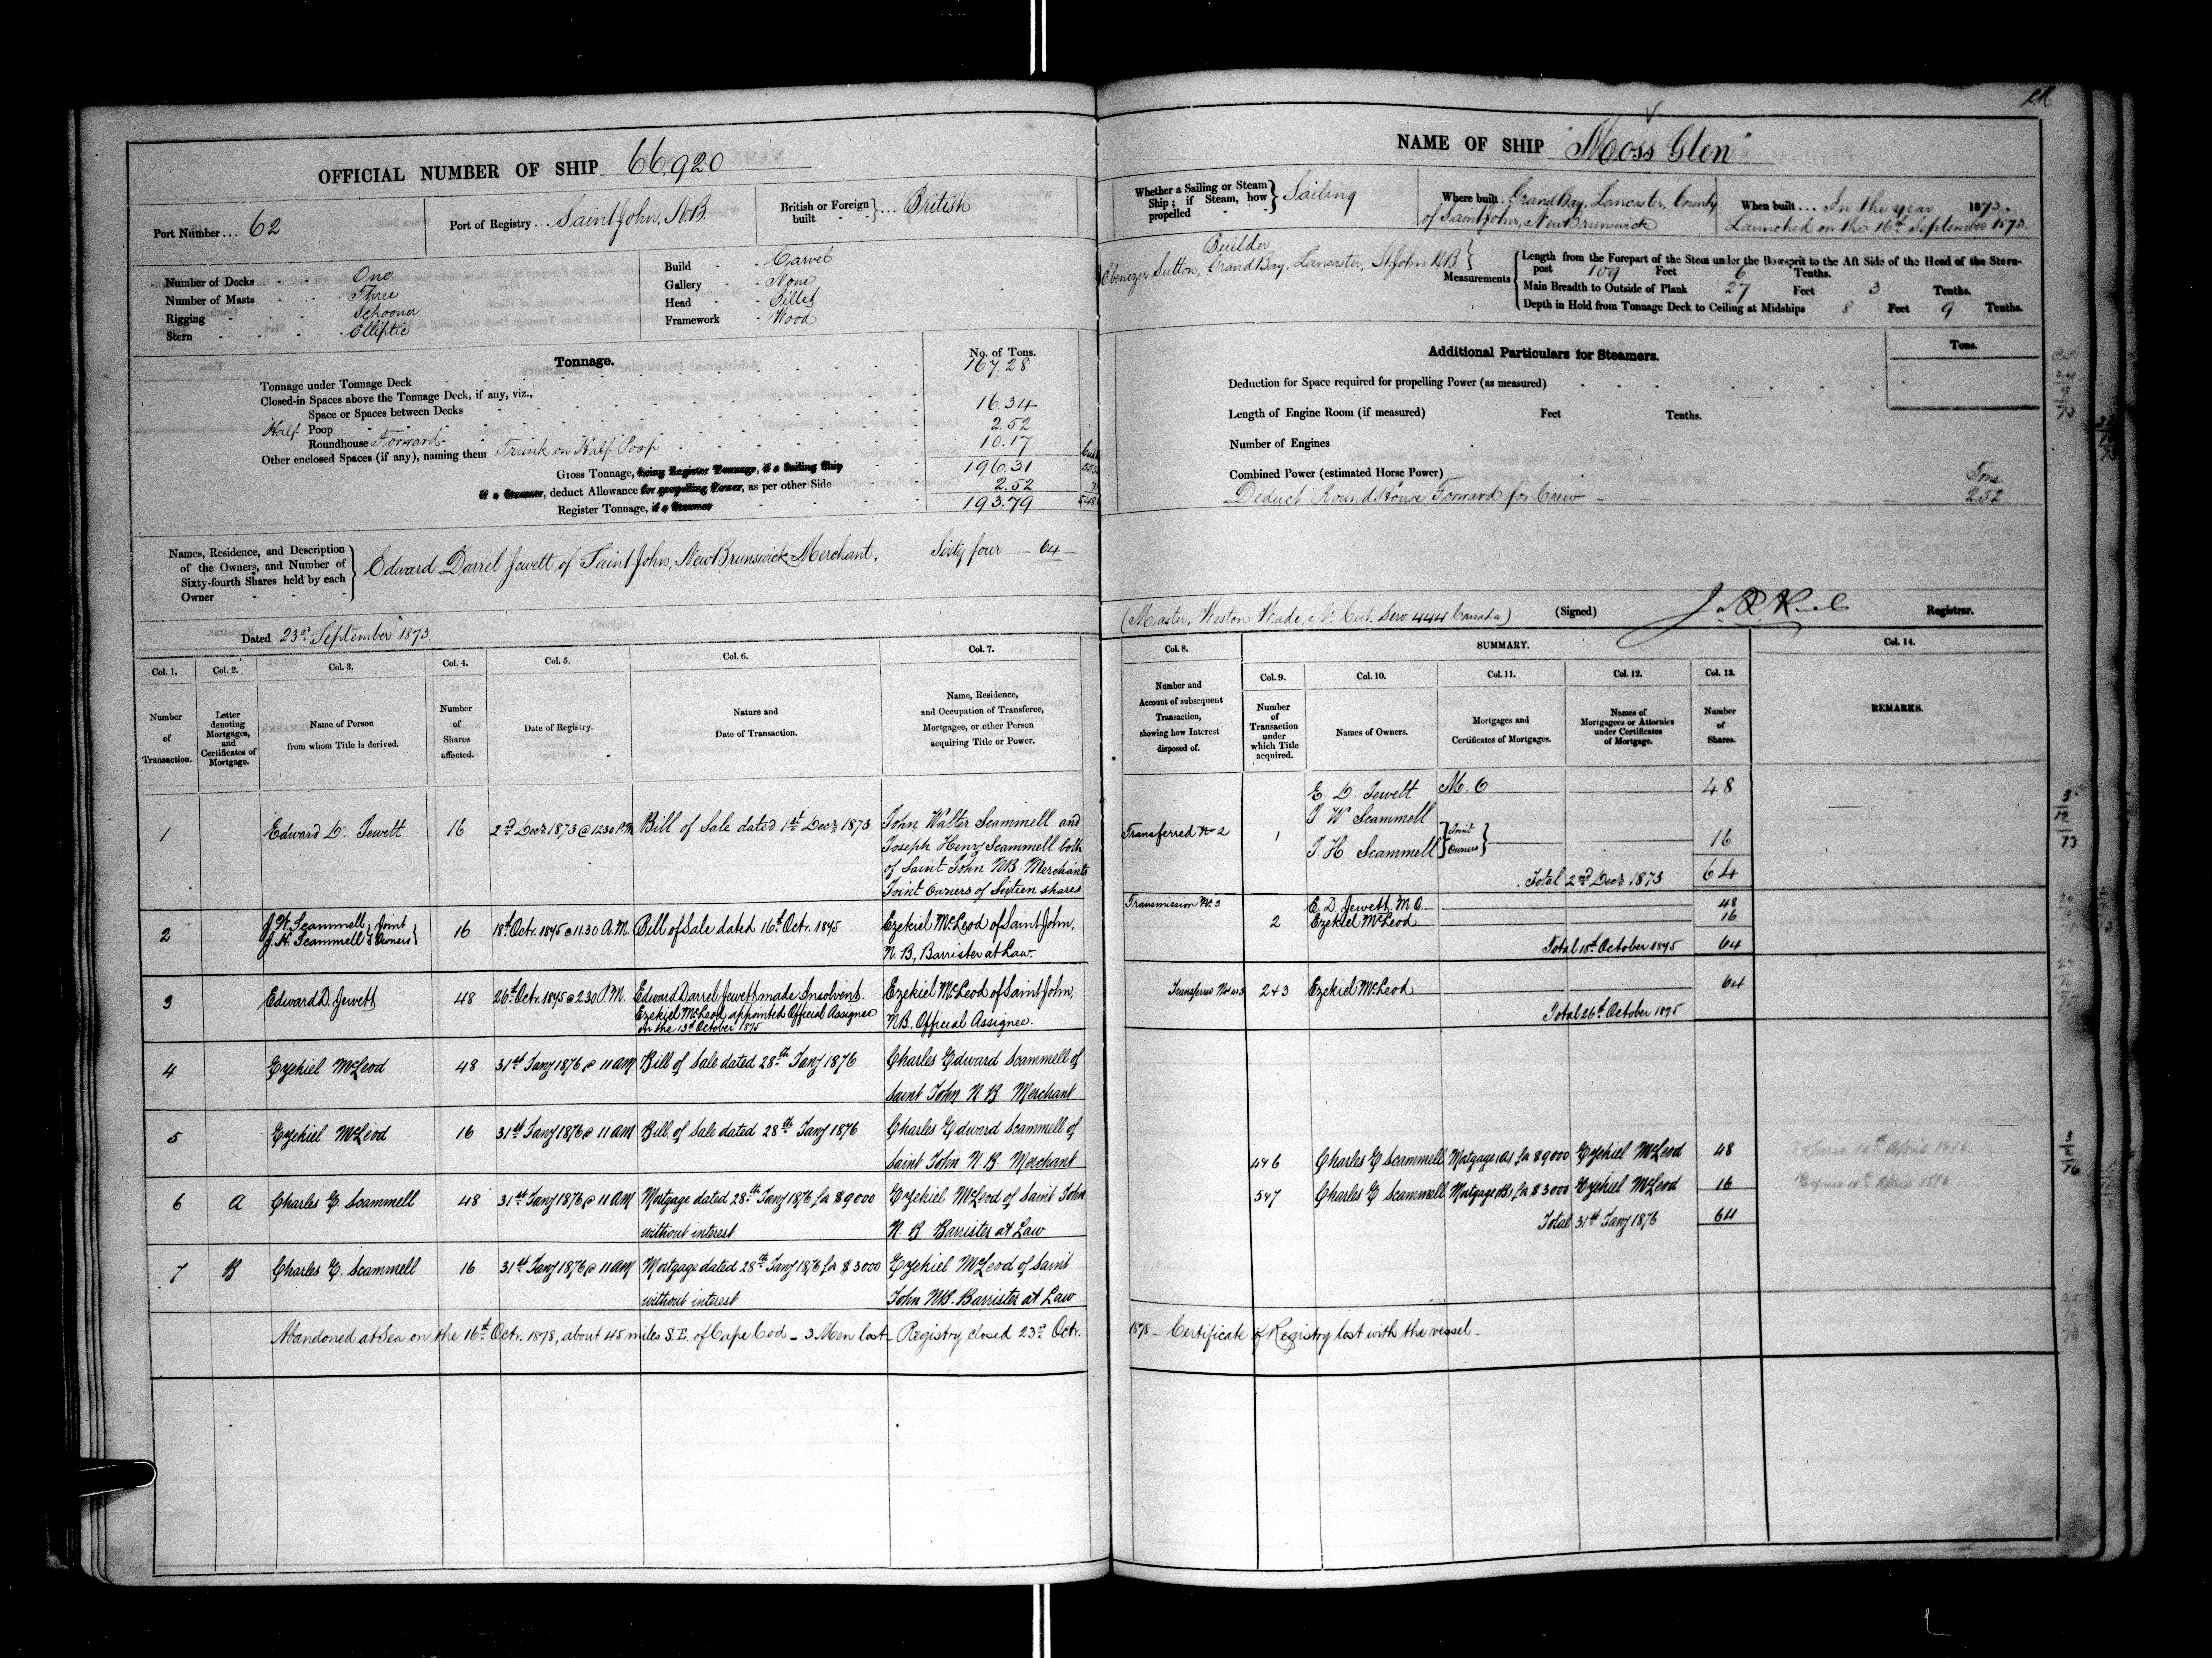 OFFICIAL NUMBER OF SHIP 66,920
Port Number ... 62
Port of Registry ... Saint John, N.B.
British or Foreign built } ... British
Number of Decks One
Number of Masts Three
Rigging Schooner
Stern Elliptic
Build Carvel
Gallery None
Head Billet
Framework Wood
Tonnage.
No. of Tons.
Tonnage under Tonnage Deck 167.28
Closed-in Spaces above the Tonnage Deck, if any, viz.,
Space or Spaces between Decks
Half Poop 16.34
Roundhouse Forward 2.52
Other enclosed Spaces (if any), naming them Trunk on Half Poop 10.17
Gross Tonnage, being Register Tonnage, if a Sailing Ship 196.31
if a Steamer, deduct Allowance for propelling Power, as per other Side 2.52
Register Tonnage, if a Steamer 193.79
Names, Residence, and Description of the Owners, and Number of Sixty-fourth Shares held by each Owner } Edward Darrel Jewett of Saint John, New Brunswick Merchant. Sixty four — 64
Dated 23rd September 1873.
Col. 1. Col. 2. Col. 3. Col. 4. Col. 5. Col. 6. Col. 7.
Number of Transaction.
Letter denoting Mortgages, and Certificates of Mortgage.
Name of Person from whom Title is derived.
Number of Shares affected.
Date of Registry.
Nature and Date of Transaction.
Name, Residence, and Occupation of Transferee, Mortgagee, or other Person acquiring Title or Power.
1 Edward D. Jewett 16 2nd Decr 1873 @ 12.30 P.M. Bill of Sale dated 1st Decr 1873 John Walter Scammell and
Joseph Henry Scammell both
of Saint John NB. Merchants
Joint Owners of Sixteen shares
2 J. W. Scammell } Joint
J. H. Scammell } Owners 16 18th Octr. 1875 @ 11.30 A.M. Bill of Sale dated 16th Octr. 1875 Ezekiel McLeod of Saint John,
N. B., Barrister at Law.
3 Edward D. Jewett 48 26th Octr. 1875 @ 2.30 P.M. Edward Darrel Jewett made Insolvent.
Ezekiel McLeod appointed Official Assignee
on the 13th October 1875
Ezekiel McLeod of Saint John,
NB. Official Assignee.
4 Ezekiel McLeod 48 31st Jany 1876 @ 11 am Bill of Sale dated 28th Jany 1876 Charles Edward Scammell of
Saint John N. B Merchant
5 Ezekiel McLeod 16 31st Jany 1876 @ 11 am Bill of Sale dated 28th Jany 1876 Charles Edward Scammell of
Saint John N. B Merchant
6 A Charles E. Scammell 48 31st Jany 1876 @ 11 am Mortgage dated 28th Jany 1876 for $9000
without interest
Ezekiel McLeod of Saint John
N. B Barrister at Law
7 B Charles E. Scammell 16 31st Jany 1876 @ 11 am Mortgage dated 28th Jany 1876 for $3000
without interest
Ezekiel McLeod of Saint
John NB. Barrister at Law
Abandoned at Sea on the 16th Octr. 1878, about 45 miles S.E. of Cape Cod – 3 Men lost – Registry closed 23rd Octr.
NAME OF SHIP "Moss Glen"
Whether a Sailing or Steam Ship; if Steam, how propelled } Sailing
Where built Grand Bay, Lancaster, County
of Saint John, New Brunswick
When built ... In the year 1873.
Launched on the 16th September 1873.
Builder
Ebenezer Sutton, Grand Bay, Lancaster, St John NB
Measurements
Length from the Forepart of the Stem under the Bowsprit to the Aft Side of the Head of the Stern-post 109 Feet 6 Tenths.
Main Breadth to Outside of Plank 27 Feet 3 Tenths.
Depth in Hold from Tonnage Deck to Ceiling at Midships 8 Feet 9 Tenths.
Additional Particulars for Steamers.
Tons.
Deduction for Space required for propelling Power (as measured)
Length of Engine Room (if measured) Feet Tenths.
Number of Engines
Combined Power (estimated Horse Power)
Deduct Round House Forward for Crew — Tons 2.52
(Master, Weston Wade, No. Cert. Serv. 444 Canada) (Signed) Registrar.
Col. 8. SUMMARY. Col. 14.
Col. 9. Col. 10. Col. 11. Col. 12. Col. 13.
Number and Account of subsequent Transaction, showing how Interest disposed of.
Number of Transaction under which Title acquired.
Names of Owners.
Mortgages and Certificates of Mortgages.
Names of Mortgagees or Attornies under Certificates of Mortgage.
Number of Shares.
REMARKS.
E. D. Jewett M. O 48
J W Scammell
Transferred No 2 1 J. H Scammell } Joint Owners } 16
Total 2nd Decr 1873 64
Transmission No. 3 E. D. Jewett, M. O. 48
2 Ezekiel McLeod 16
Total 18th October 1875 64
2+3 Ezekiel McLeod 64
Total 26th October 1875
4+6 Charles E Scammell Mortgage (A) for $9000 Ezekiel McLeod 48
5+7 Charles E Scammell Mortgage (B) for $3000 Ezekiel McLeod 16
Total 31st Jany 1876 64
1878 – Certificate of Registry lost with the vessel –